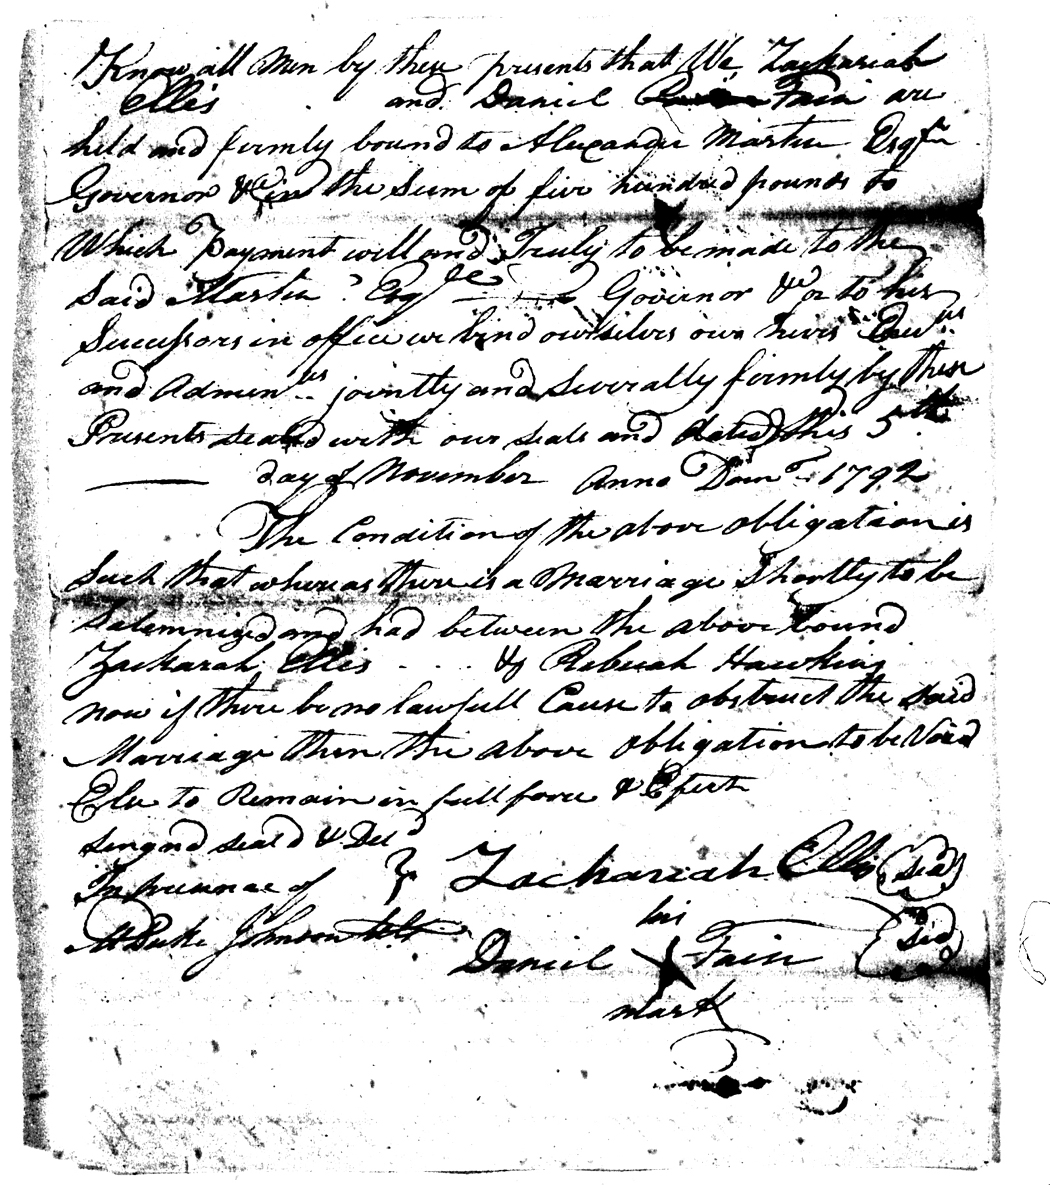 Know all Men by these presents that We Zachariah
Ellis and Daniel Fain are
held and firmly bound to Alexander Martin Esqr
Governor &c in the Sum of five hundred pounds to
Which Payment will and Truly to be made to the
Said Martin Esqr Governor &c or to his
Successors in office we bind ourselves our heirs Exrs
and Adminrs jointly and Severally firmly by these
Presents sealed with our seals and dated this 5th
day of November Anno Domo 1792
The Condition of the above obligation is
Such that whereas there is a Marriage Shortly to be
Solemnized and had between the above bound
Zackarah Ellis & Rebecah Hawkins
now if there be no lawfull Cause to obstruct the Said
Marriage then the above obligation to be Void
Else to Remain in full force & Efect
Singnd Seald & Deld
In presence of Zachariah Ellis (Seal)
Johnson his
Daniel X Fain (Seal)
mark